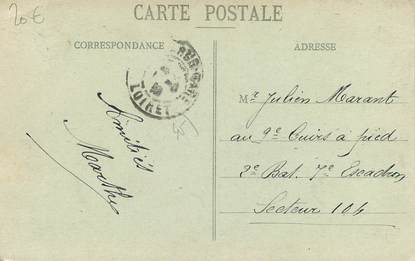 20€
CARTE POSTALE
CORRESPONDANCE
ADRESSE
LOIRET
Amitiés
Marthe
Mr Julien Marant
au 9e Cuirs à pied
2e Bat. 7e Escadron
Secteur 104